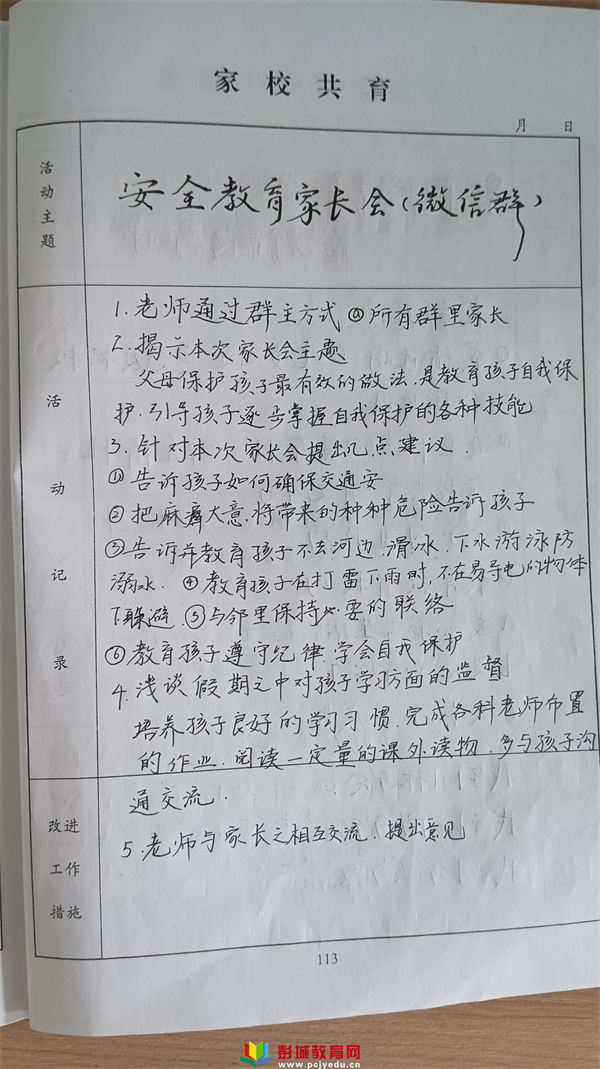 家校共育
月 日
活动主题
安全教育家长会(微信群)
活动记录
1.老师通过群主方式@所有群里家长
2.揭示本次家长会主题
父母保护孩子最有效的做法.是教育孩子自我保
护.引导孩子逐步掌握自我保护的各种技能
3.针对本次家长会提出几点建议.
①告诉孩子如何确保交通安
②把麻痹大意.将带来的种种危险告诉孩子
③告诉并教育孩子不去河边.滑冰.下水游泳防
溺水.④教育孩子在打雷下雨时,不在易导电的物体
下躲避.⑤与邻里保持必要的联络
⑥教育孩子遵守纪律.学会自我保护
4.浅谈假期之中对孩子学习方面的监督
培养孩子良好的学习习惯.完成各科老师布置
的作业.阅读一定量的课外读物.多与孩子沟
通交流.
5.老师与家长之相互交流.提出意见
改进
工作
措施
113
彭城教育网
www.pcjyedu.cn